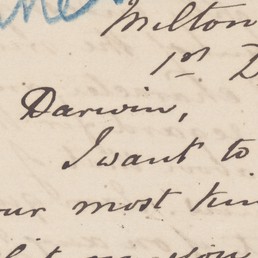 Milton
1st D
Darwin,
I want to
our most kin